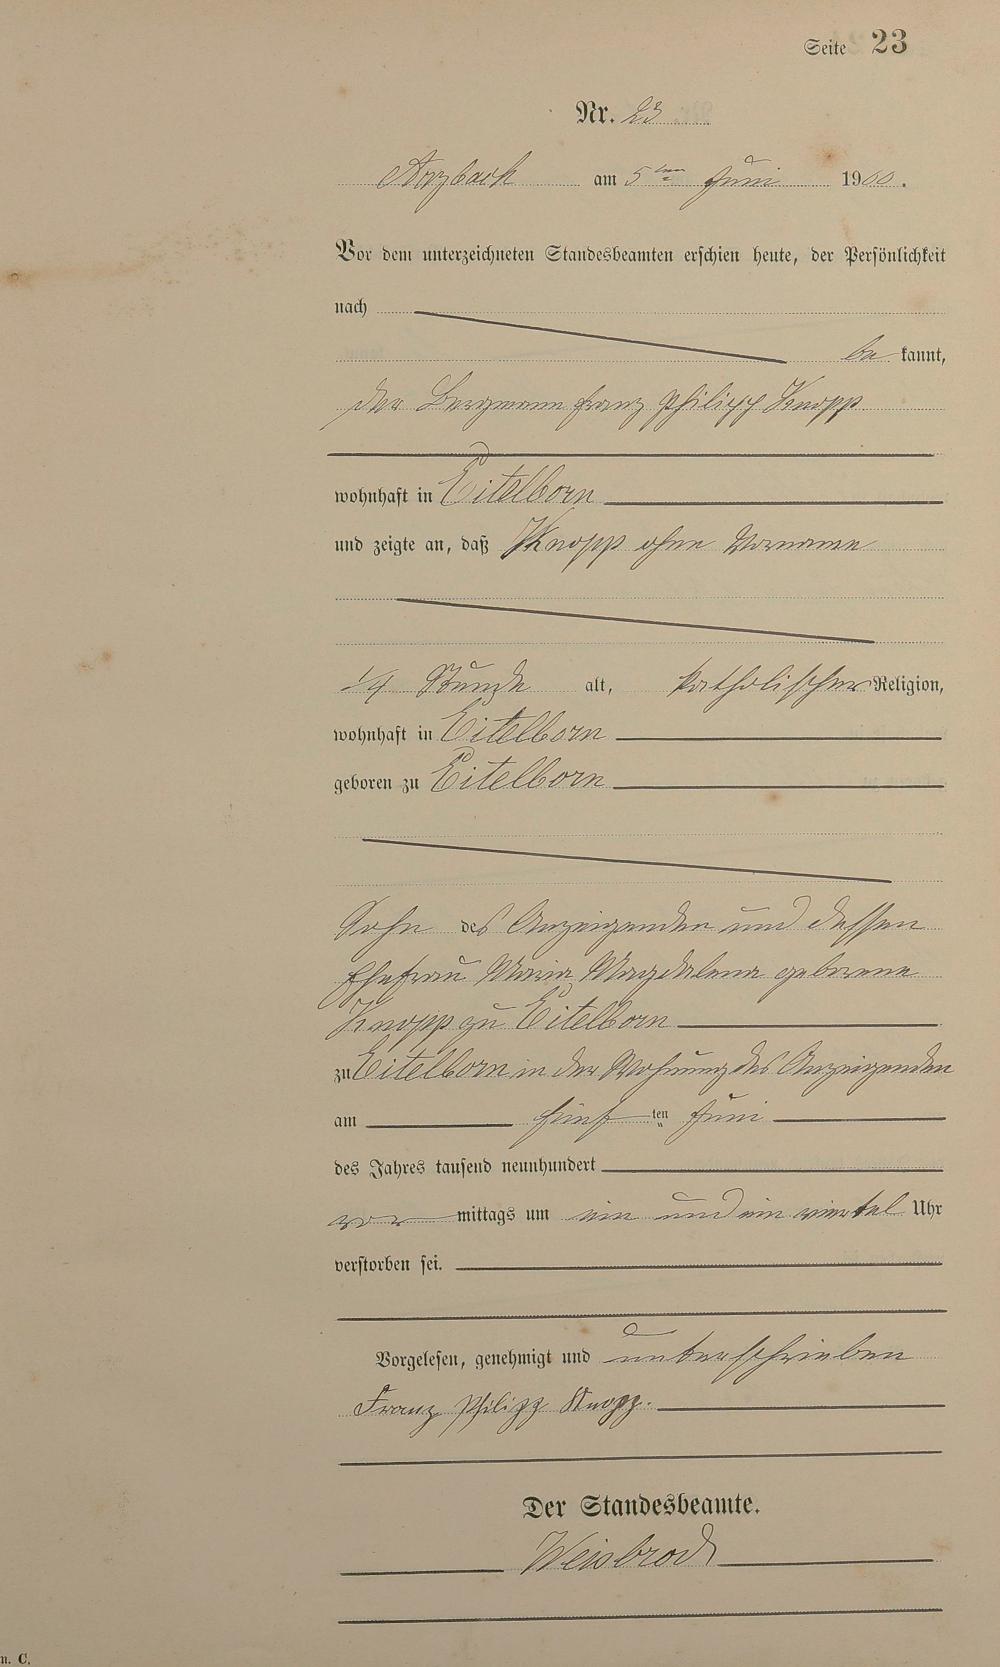 Seite 23
Nr. 23
Arzbach am 5ten Juni 1900.
Vor dem unterzeichneten Standesbeamten erschien heute, der Persönlichkeit
nach
be kannt,
der Bergmann Franz Philipp Knopp
wohnhaft in Eitelborn
und zeigte an, daß Knopp ohne Vorname
1/4 Stunde alt, katholischer Religion,
wohnhaft in Eitelborn
geboren zu Eitelborn
Sohn des Anzeigenden und dessen
Ehefrau Maria Magdalena geborene
Knopp zu Eitelborn
zu Eitelborn in der Wohnung des Anzeigenden
am fünf ten Juni
des Jahres tausend neunhundert
vor mittags um ein und ein viertel Uhr
verstorben sei.
Vorgelesen, genehmigt und unterschrieben
Franz Philipp Knopp.
Der Standesbeamte.
Weisbrod
n. C.